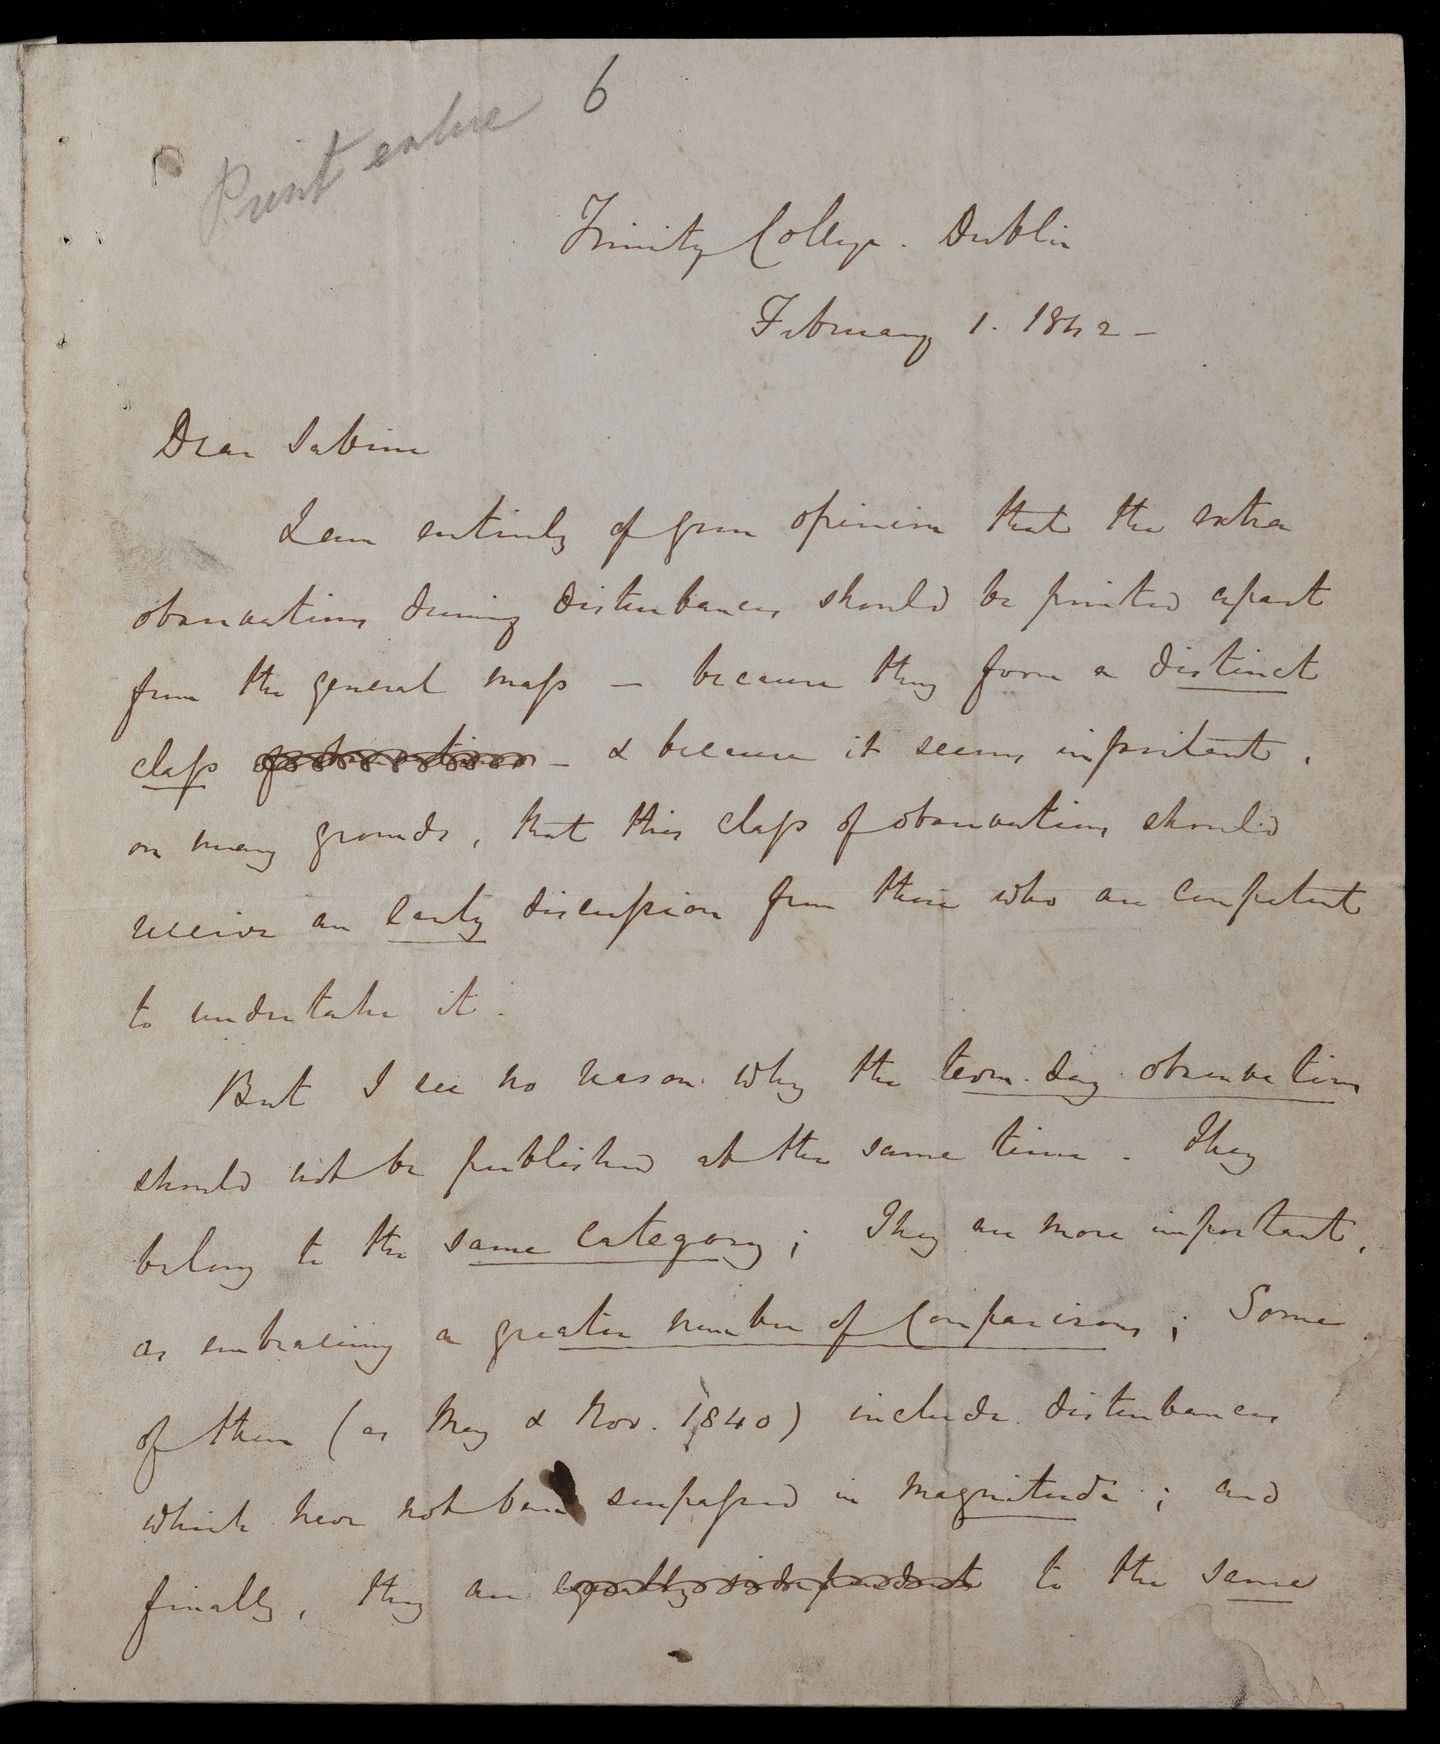 Print entire 6
Trinity College. Dublin
February 1. 1842 –
Dear Sabine
I am entirely of your opinion that the extra
observations during disturbances should be printed apart
from the general mass – because they form a distinct
class of observations – & because it seems important,
on many grounds, that this class of observations should
receive an early discussion from those who are competent
to undertake it.
But I see no reason why the term-day observations
should not be published at the same time. They
belong to the same category; They are more important,
as embracing a greater number of comparisons; Some
of them (as May & Nov. 1840) include disturbances
which have not been surpassed in magnitude; and
finally, they are equally independent to the same